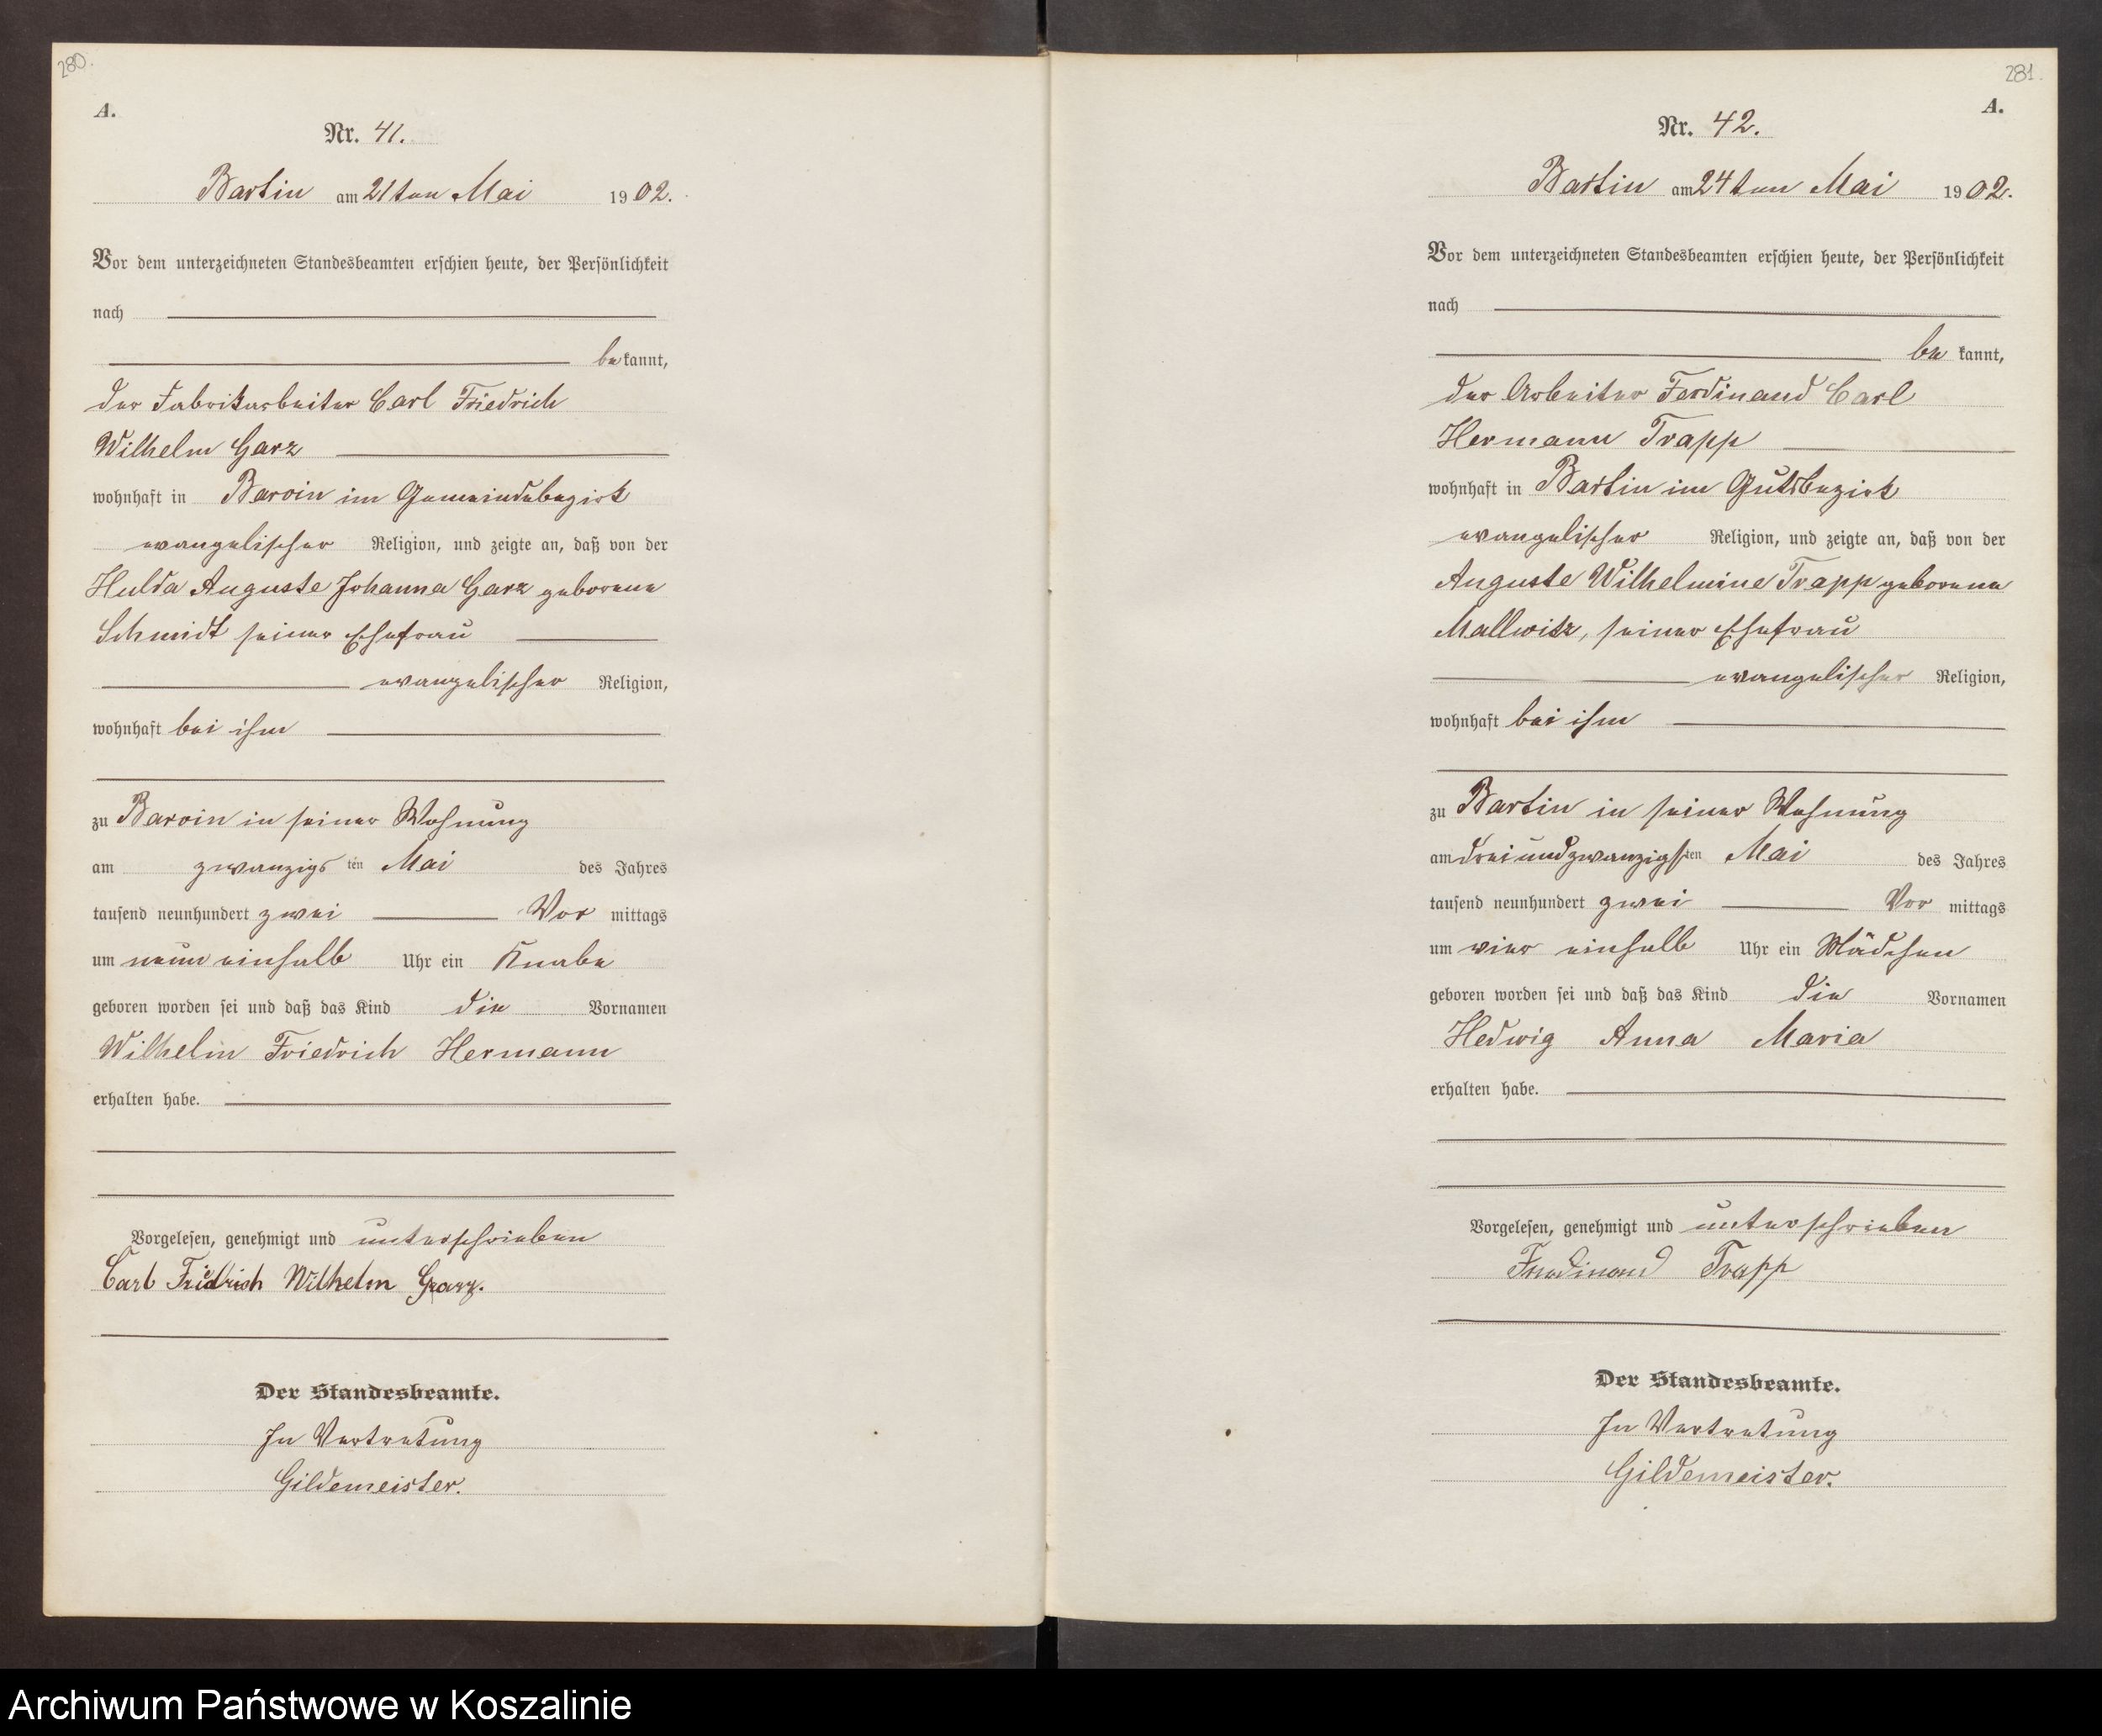 280.
A.
Nr. 41.
Bartin am 21ten Mai 1902.
Vor dem unterzeichneten Standesbeamten erschien heute, der Persönlichkeit
nach
bekannt,
der Fabrikarbeiter Carl Friedrich
Wilhelm Garz
wohnhaft in Barvin im Gemeindebezirk
evangelischer Religion, und zeigte an, daß von der
Hulda Auguste Johanna Garz geborene
Schmidt seiner Ehefrau
evangelischer Religion,
wohnhaft bei ihm
zu Barvin in seiner Wohnung
am zwanzigsten Mai des Jahres
tausend neunhundert zwei Vor mittags
um neun einhalb Uhr ein Knabe
geboren worden sei und daß das Kind die Vornamen
Wilhelm Friedrich Hermann
erhalten habe.
Vorgelesen, genehmigt und unterschrieben
Carl Fridrich Wilhelm Garz.
Der Standesbeamte.
In Vertretung
Gildemeister.
281.
A.
Nr. 42.
Bartin am 24ten Mai 1902.
Vor dem unterzeichneten Standesbeamten erschien heute, der Persönlichkeit
nach
be kannt,
der Arbeiter Ferdinand Carl
Hermann Trapp
wohnhaft in Bartin im Gutsbezirk
evangelischer Religion, und zeigte an, daß von der
Auguste Wilhelmine Trapp geborene
Mallwitz, seiner Ehefrau
evangelischer Religion,
wohnhaft bei ihm
zu Bartin in seiner Wohnung
am dreiundzwanzigsten Mai des Jahres
tausend neunhundert zwei Vor mittags
um vier einhalb Uhr ein Mädchen
geboren worden sei und daß das Kind die Vornamen
Hedwig Anna Maria
erhalten habe.
Vorgelesen, genehmigt und unterschrieben
Ferdinand Trapp
Der Standesbeamte.
In Vertretung
Gildemeister.
Archiwum Państwowe w Koszalinie